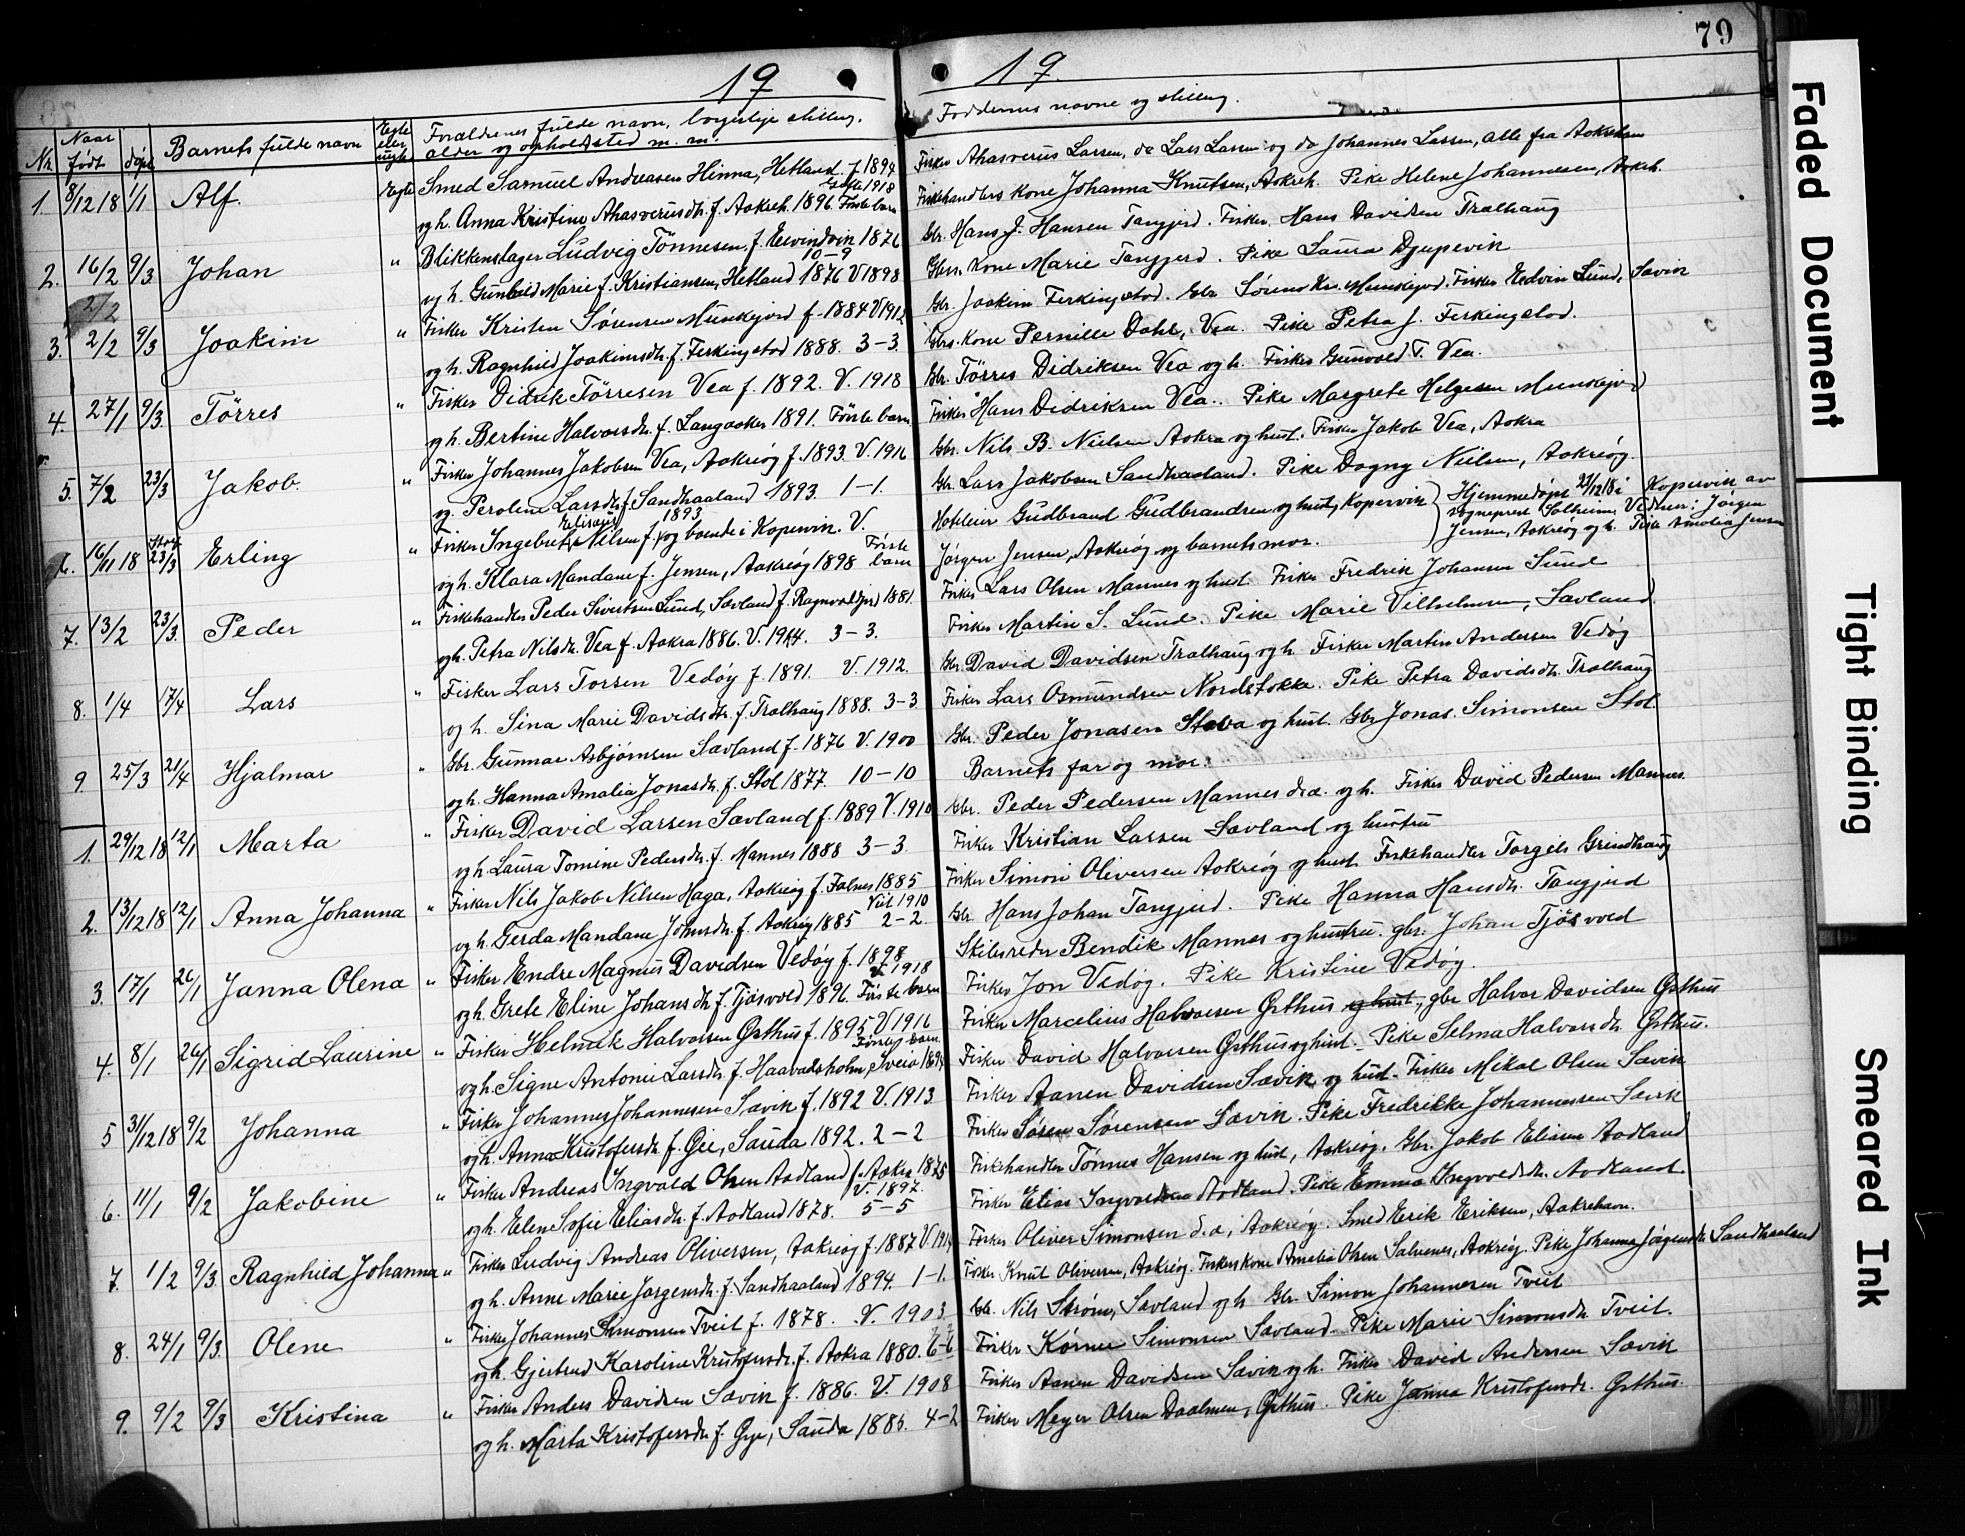 79
19
19
Nr.
Naar født
døpt
Barnets fulde navn
Egte eller uegte
Forældrenes fulde navn, borgerlige stilling,
alder og opholdssted m. m.
Faddernes navne og stilling.
1. 8/12 18 1/1 Alf. Egte Smed Samuel Andreasen Hinna, Hetland f. 1894
Gift 1918
og h. Anna Kristine Ahasverusdtr. f. Aakreh. 1896. Første barn
Fisker Ahasverus Larsen, do Lars Larsen og do Johannes Larsen, alle fra Aakrehavn
Fiskehandlers kone Johanna Knutsen, Aakreh. Pike Helene Johannesen, Aakreh.
2. 16/2 9/3 Johan " Blikkenslager Ludvig Tönnesen f. Eivindvik 1876
10-9
og h. Gunhild Marie f. Kristiansen, Hetland 1876 V 1898
Gbr. Hans J. Hansen Tangjerd. Fisker Hans Davidsen Tralhaug
Gbrs. kone Marie Tangjerd. Pike Laura Djupevik
2/2
3. 2/2 9/3 Joakim " Fisker Kristen Sørensen Munkejord f. 1884 V 1912
og h. Ragnhild Joakimsdtr. f. Ferkingstad 1888. 3-3.
Gbr. Joakim Ferkingstad. Gbr Søren Kr. Munkejord. Fisker Edvin Lund, Sævik
Gbrs. kone Pernille Dahle, Vea. Pike Petra J. Ferkingstad.
4. 27/1 9/3. Törres " Fisker Didrik Törresen Vea f. 1892. V. 1918
og h. Bertine Halvorsdtr. f. Langaaker 1891. Første barn
Gbr. Törres Didriksen Vea og h. Fisker Gunvald T. Vea.
Fisker Hans Didriksen Vea. Pike Margrete Helgesen Munkejord
5. 7/2 23/3 Jakob. " Fisker Johannes Jakobsen Vea, Aakreøg f. 1893. V. 1916
og Peroline Larsdtr. f. Sandhaaland 1893. 1-1.
Gbr. Nils B. Nielsen Aakra og hust. Fisker Jakob Vea, Aakra
Gbr. Lars Jakobsen Sandhaaland. Pike Dagny Nielsen, Aakreøg.
6. 16/11 18 23/3 Erling " Fisker Ingebret Nilsen f. 1893 og boende i Kopervik. V.
og h. Klara Mandane f. Jensen, Aakreøg 1898 Første barn
Hoteleier Gudbrand Gudbrandsen og hust, Kopervik
Jørgen Jensen, Aakreøg og barnets mor.
Hjemmedøpt 21/12 18 i Kopervik av
sogneprest Solheim, Vidner: Jørgen
Jensen, Aakreøg og h. Pike Amalia Jensen
7. 13/2 23/3. Peder " Fiskehandler Peder Sivertsen Lund, Sævland f. Ragnvaldsjord 1881.
og h. Petra Nilsdtr. Vea f. Aakra 1886. V. 1914. 3-3.
Fisker Lars Olsen Mannes og hust. Fisker Fredrik Johansen Lund
Fisker Martin S. Lund. Pike Marie Vilhelmsen, Sævland.
8. 1/4 17/4 Lars " Fisker Lars Torsen Vedöy f. 1891. V. 1912.
og h. Sina Marie Davidsdtr. f. Tralhaug 1888. 3-3
Gbr. David Davidsen Tralhaug og h. Fisker Martin Andersen Vedøg
Fisker Lars Osmundsen Nordstokke. Pike Petra Davidsdtr. Tralhaug
9 25/3 21/4 Hjalmar " Gbr. Gunnar Asbjørnsen Sævland f. 1876 V. 1900
og h. Hanna Amalia Jonasdtr. f. Stol 1877. 10-10
Gbr. Peder Jonasen Stava og hust. Gbr Jonas Simonsen Stol.
Barnets far og mor.
1. 29/12 18 12/1 Marta " Fisker David Larsen Sævland f. 1889 V. 1910
og h. Laura Tomine Pedersdtr. f. Mannes 1888 3-3.
Gbr. Peder Pedersen Mannes d.æ. og h. Fisker David Pedersen Mannes.
Fisker Kristian Larsen Sævland og hustru
2. 13/12 18 12/1 Anna Johanna " Fisker Nils Jakob Nilsen Haga, Aakreøg f. Falnes 1885
Viet 1910
og h. Gerda Mandane Johnsdtr. f. Aakreøg 1885 2-2.
Fisker Simon Oliversen Aakreøg og hust. Fiskehandler Torgils Grindhaug
Gbr. Hans Johan Tangjerd. Pike Hanna Hansdtr. Tangjerd
3. 17/1 26/1 Janna Olena " Fisker Endre Magnus Davidsen Vedöy f. 1898
V. 1918
og h. Grete Eline Johansdtr. f. Tjøsvold 1896. Første barn
Skibsreder Bendik Mannes og hustru. gbr. Johan Tjøsvold
Fisker Jon Vedøg. Pike Kristine Vedøg.
4. 8/1 26/1 Sigrid Laurine " Fisker Helmik Halvorsen Østhus f. 1895 V 1916
Første barn
og h. Signe Antonie Larsdtr. f. Haavadsholm, Sveio 189
Fisker Marcelius Halvorsen Østhus og hust., gbr Halvor Davidsen Østhus
Fisker David Halvorsen Østhus og hust. Pike Selma Halvorsdtr. Østhus.
5 31/12 18 9/2 Johanna " Fisker Johannes Johannesen Sævik f. 1892 V. 1913
og h. Anna Kristofersdtr. f. Gye, Sauda 1892. 2-2
Fisker Aanen Davidsen Sævik og hust. Fisker Mikal Olsen Sævik
Fisker Søren Sørensen Sævik. Pike Fredrikke Johannessen Sævik
6. 11/1 9/2 Jakobine " Fisker Andreas Ingvald Olsen Aadland f. Aakra 1875
V. 1897.
og h. Elen Sofie Eliasdtr. f. Aadland 1878. 5-5
Fiskehandler Tønnes Hansen og hust, Aakreøg. Gbr. Jakob Eliasen Aadland
Fisker Elias Ingvaldsen Aadland. Pike Emma Ingvoldsdtr. Aadland.
7. 1/2 9/3. Ragnhild Johanna " Fisker Ludvig Andreas Oliversen, Aakreøg f. 1887 V. 1914
og h. Anne Marie Jørgensdtr. f. Sandhaaland 1894. 1-1.
Fisker Oliver Simonsen d.æ., Aakreøg. Smed Erik Eriksen, Aakrehavn.
Fisker Knut Oliversen, Aakreøg. Fiskers kone Amalia Olsen Salvenes, Aakreøg. Pike Johanna Jörgensdtr. Sandhaaland
8. 24/1 9/3. Olene " Fisker Johannes Simonsen Tveit f. 1878. V. 1903
og h. Gjertrud Karoline Kristofersdtr. f. Aakra 1880. 6-6
Gbr. Nils Strøm, Sævland og h. Gbr. Simon Johannesen Tveit
Fisker Kørner Simonsen Sævland. Pike Marie Simonsdtr. Tveit.
9. 9/2 9/3 Kristina " Fisker Anders Davidsen Sævik f. 1886. V. 1908
og h. Marta Kristofersdtr. f. Gye, Sauda 1885. 4-2
Fisker Aanen Davidsen Sævik og h. Fisker David Andersen Sævik
Fisker Meyer Olsen Daalmen, Østhus. Pike Janna Kristofersdtr. Østhus.
Faded Document
Tight Binding
Smeared Ink